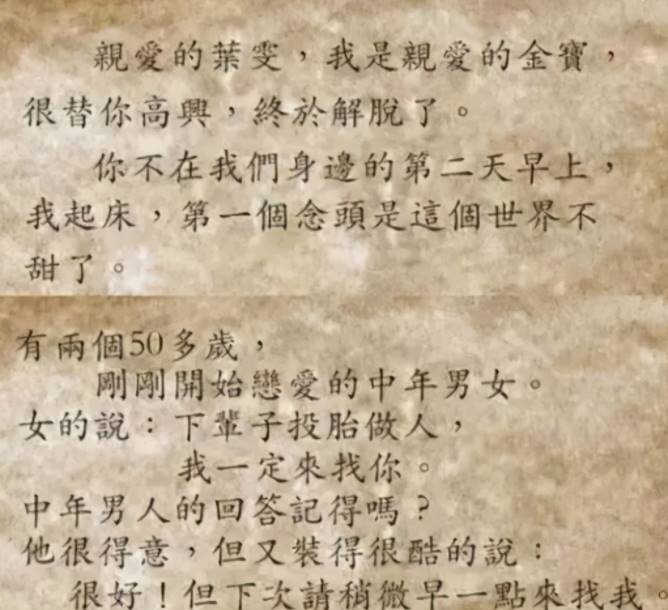 親愛的葉雯，我是親愛的金寶，
很替你高興，終於解脫了。
你不在我們身邊的第二天早上，
我起床，第一個念頭是這個世界不
甜了。
有兩個50多歲，
剛剛開始戀愛的中年男女。
女的說：下輩子投胎做人，
我一定來找你。
中年男人的回答記得嗎？
他很得意，但又裝得很酷的說：
很好！但下次請稍微早一點來找我。